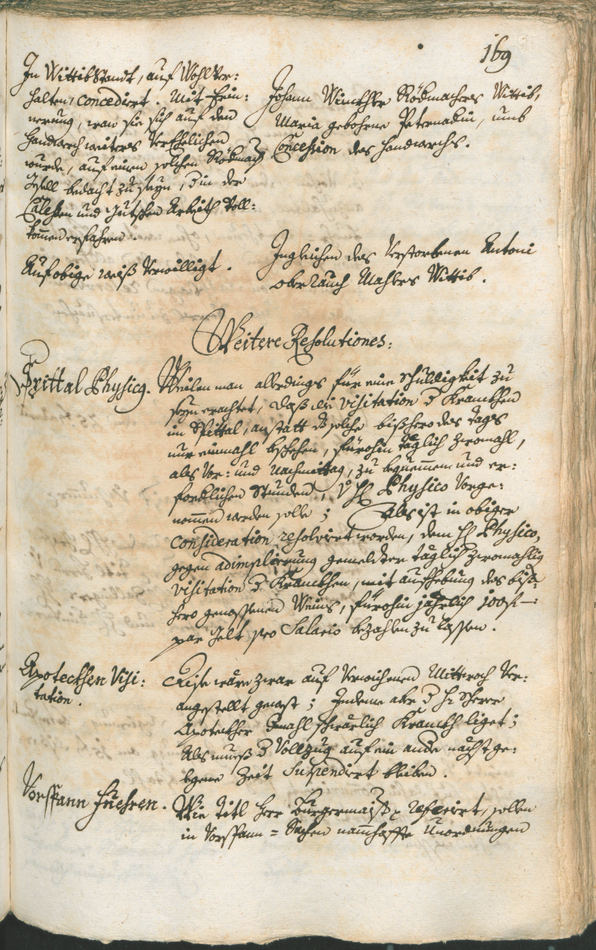 169
In Wittibstandt, auf Wohlver:
halten, concediert. Mit Erin:
nerung, wan sie sich auf den
Handwerch weiters Verehlichen
wurde, auf einen solchen
gsell bedacht zu seyn, der
und gutsten Arbeith Voll:
kommen erfahren.
Johann Wittib,
Maria gebohrne umb
Concession des Handwerchs.
Auf obige weiß Verwilligt.
Ingleichen des Verstorbenen Antoni
Wittib.
Weitere Resolutiones:
Spittal Physicg.
Weilen man allerdings für eine schuldigkeit zu
seyn erachtet, daß die visitation d Krankhen
im Spittal, anstatt d solche bißhero des tags
nur einmahl bschehen, fürohin täglich zwomahl,
als Vor: und Nachmittag, zu bequemmen und er:
forderlichen Stunden, V H Physico Vorge:
nommen werden solle; Als ist in obiger
consideration resolviert worden, dem H Physico,
gegen adimplierung gemelter täglich zwomahlig
visitation d Krankhen, mit aufhebung des biß:
hero genossenen Weins, fürohin jährlich 100 f
par gelt pro Salario bezahlen zu lassen.
Apoteckhen Visi:
tation.
Dise wäre zwar auf Verwichenen Mittwoch Ver:
angestellt gewest; Indeme aber d H
Apotecker schwärlich Krankh liget;
Als muess d Vollzug auf ein andre nächst ge:
legene Zeit Suspendiert bleiben.
Vorspann fuehren.
Wie Titl Herr Burgermaist referiert, sollen
in Vorspann = Sachen namhaffte Unordnungen